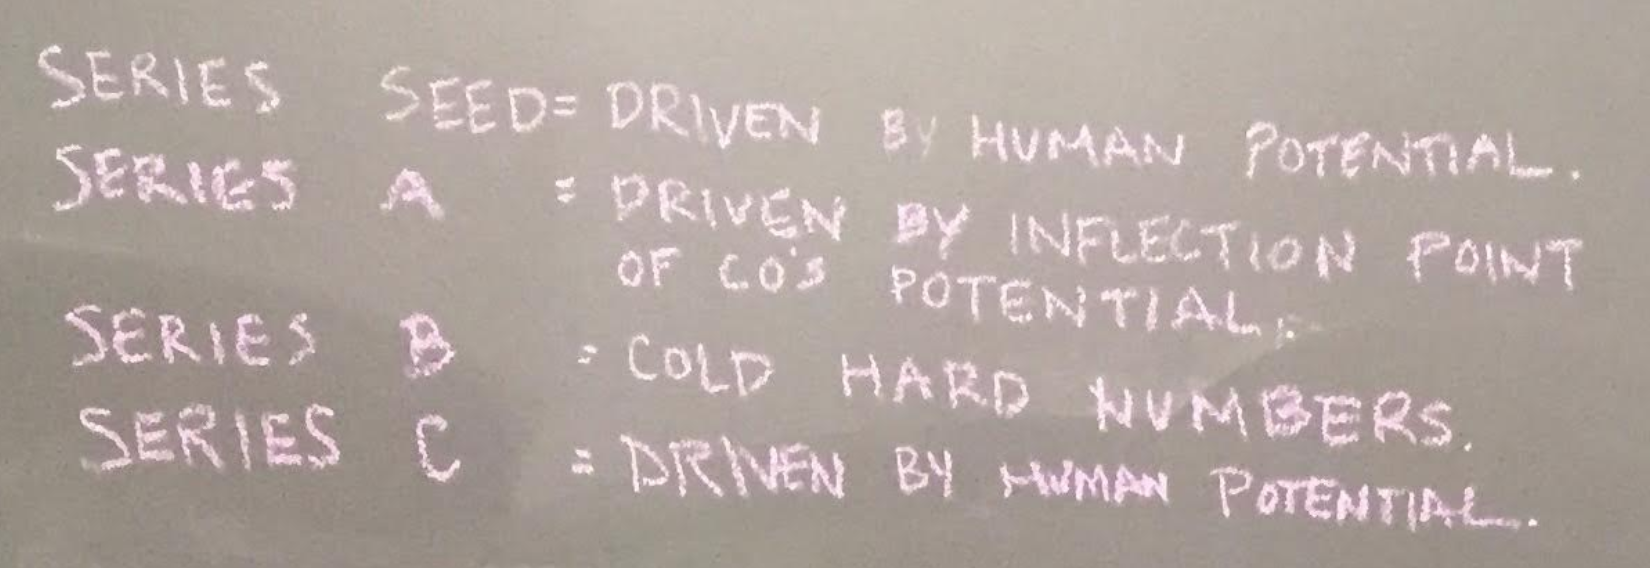 SERIES SEED= DRIVEN BY HUMAN POTENTIAL.
SERIES A = DRIVEN BY INFLECTION POINT
OF CO'S POTENTIAL.
SERIES B = COLD HARD NUMBERS.
SERIES C = DRIVEN BY HUMAN POTENTIAL.